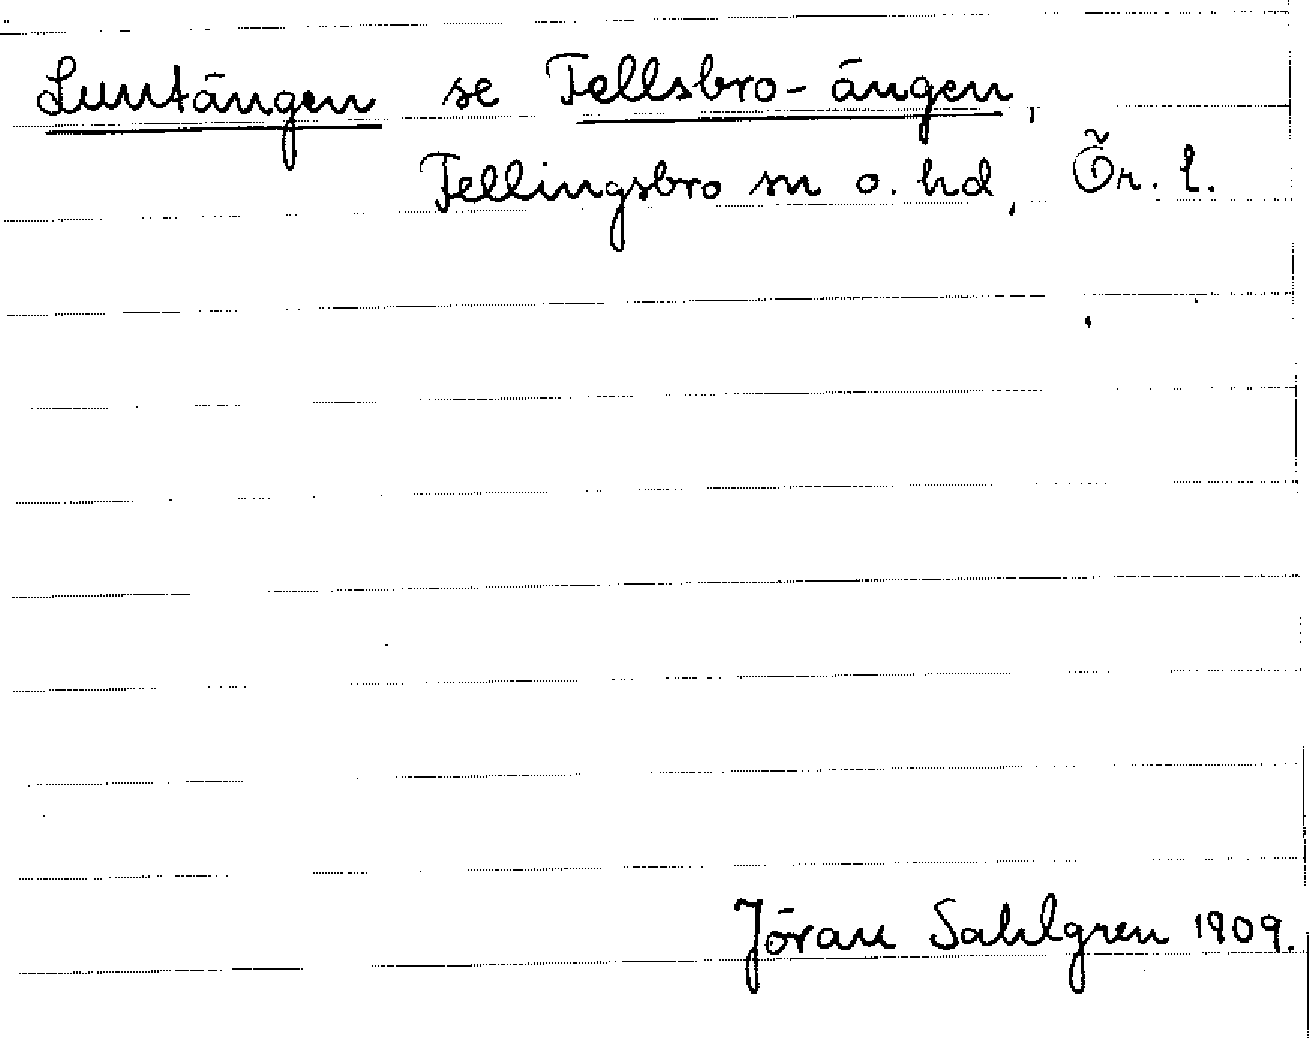 Luntängen se Fellsbro-ängen,
Fellingsbro sn o. hd, Ör. l.
Jöran Sahlgren 1909.